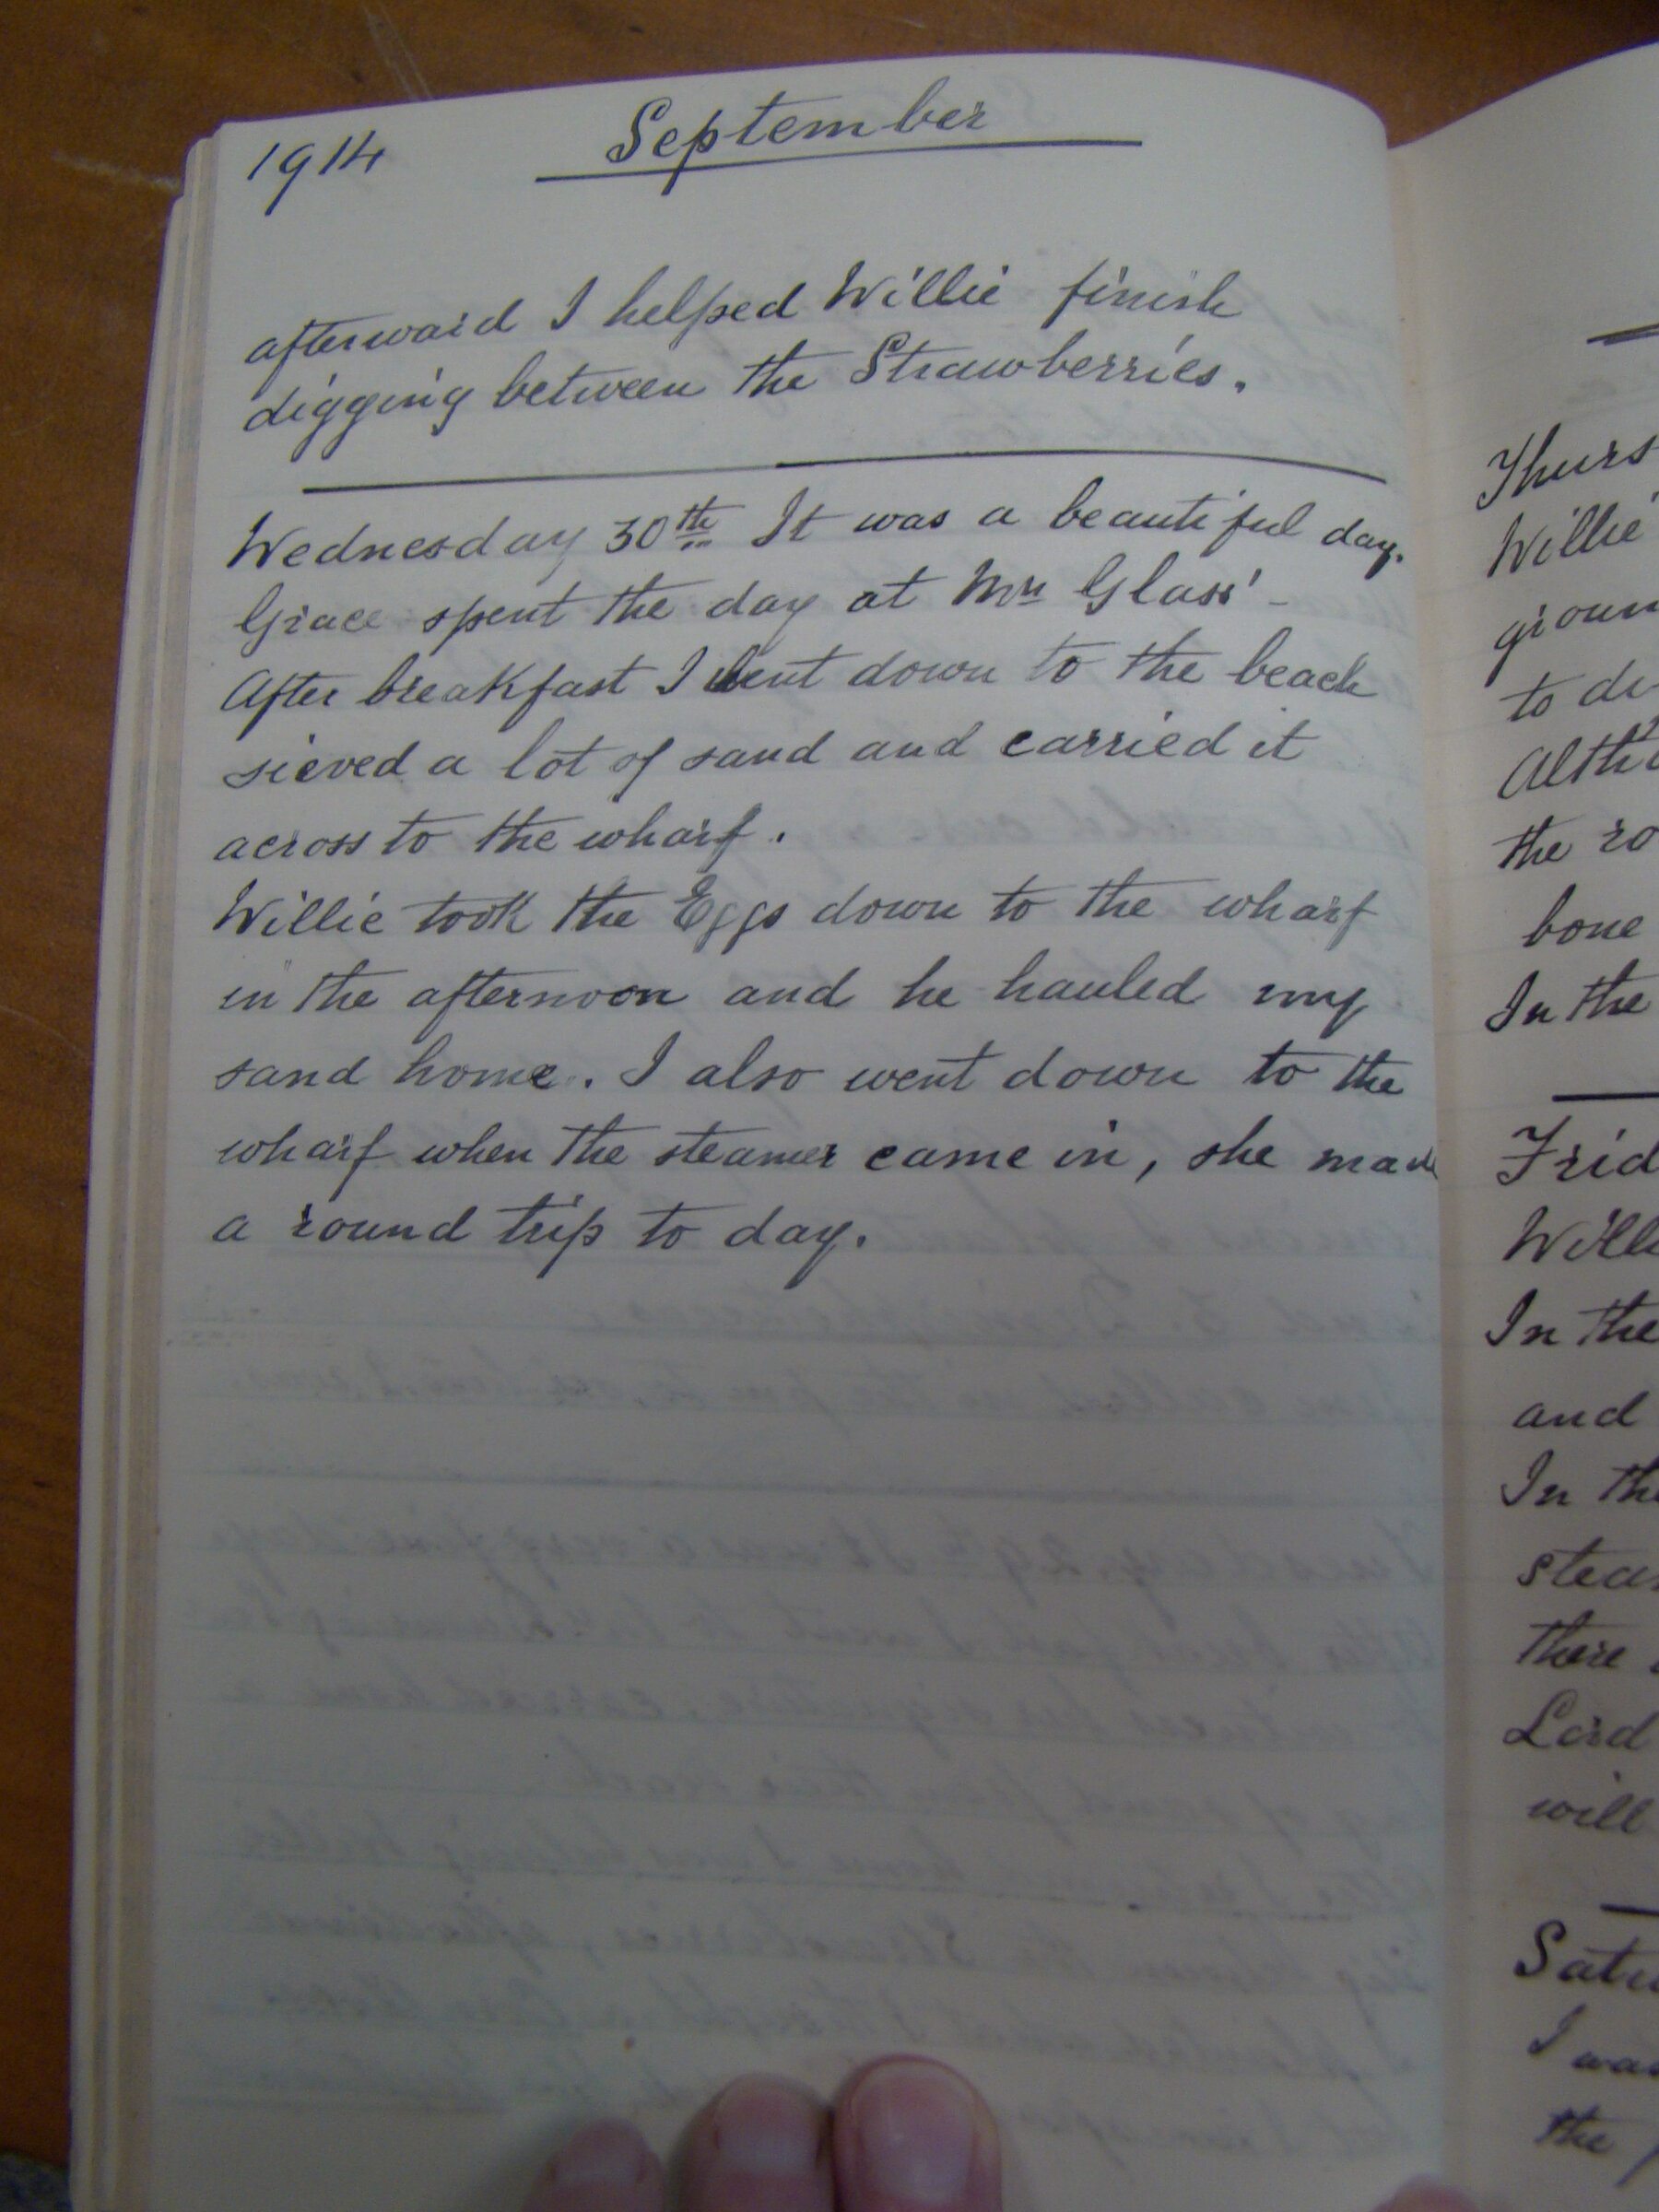 1914 September
afterward I helped Willie finish
digging between the Strawberries.
Wednesday 30th It was a beautiful day.
Grace spent the day at Mrs Glass'
After breakfast I went down to the beach
sieved a lot of sand and carried it
across to the wharf.
Willie took the Eggs down to the wharf
in the afternoon and he hauled my
sand home. I also went down to the
wharf when the steamer came in, she made
a round trip to day.
Thurs
Willie
groun
to di
Altho
the ro
bone
In the
Frid
Willi
In the
and
In the
stea
there
Lord
will
Satu
I was
the